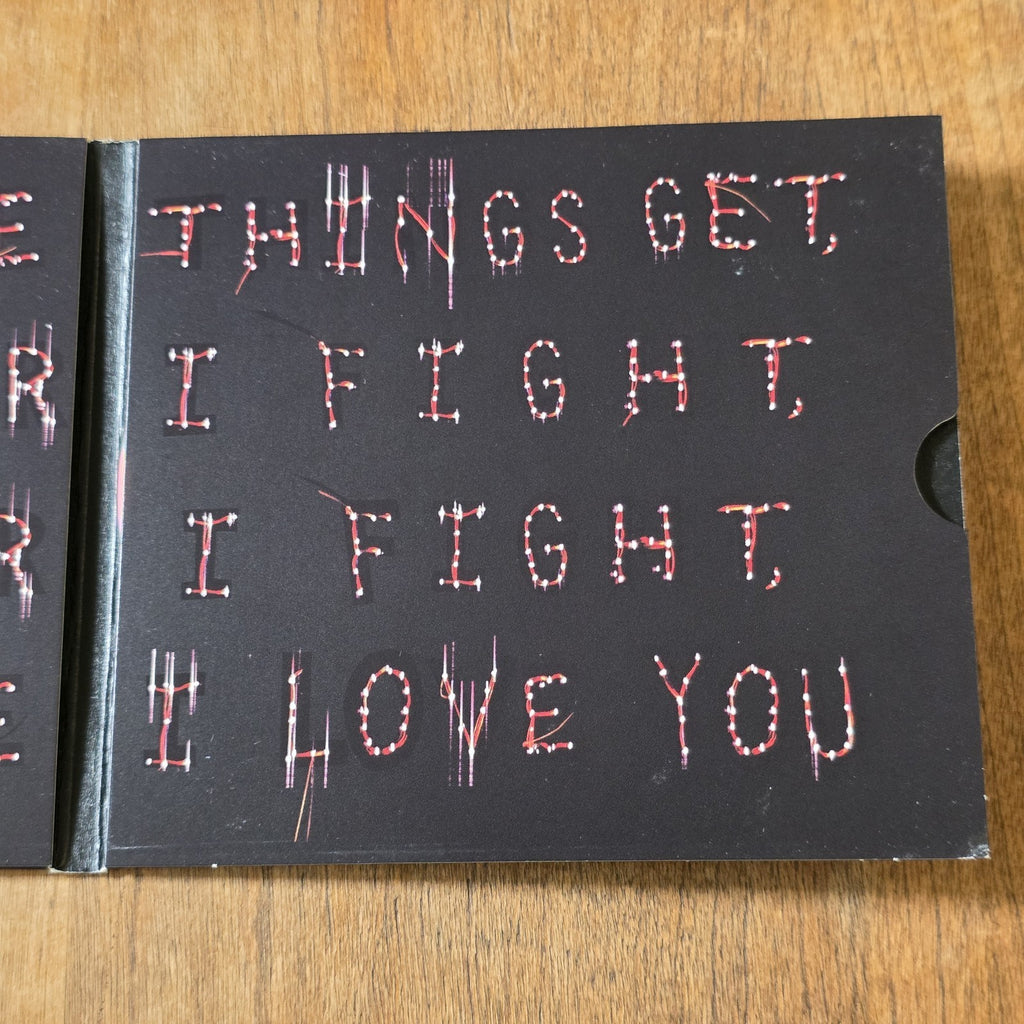 E THINGS GET,
R I FIGHT,
R I FIGHT,
E I LOVE YOU